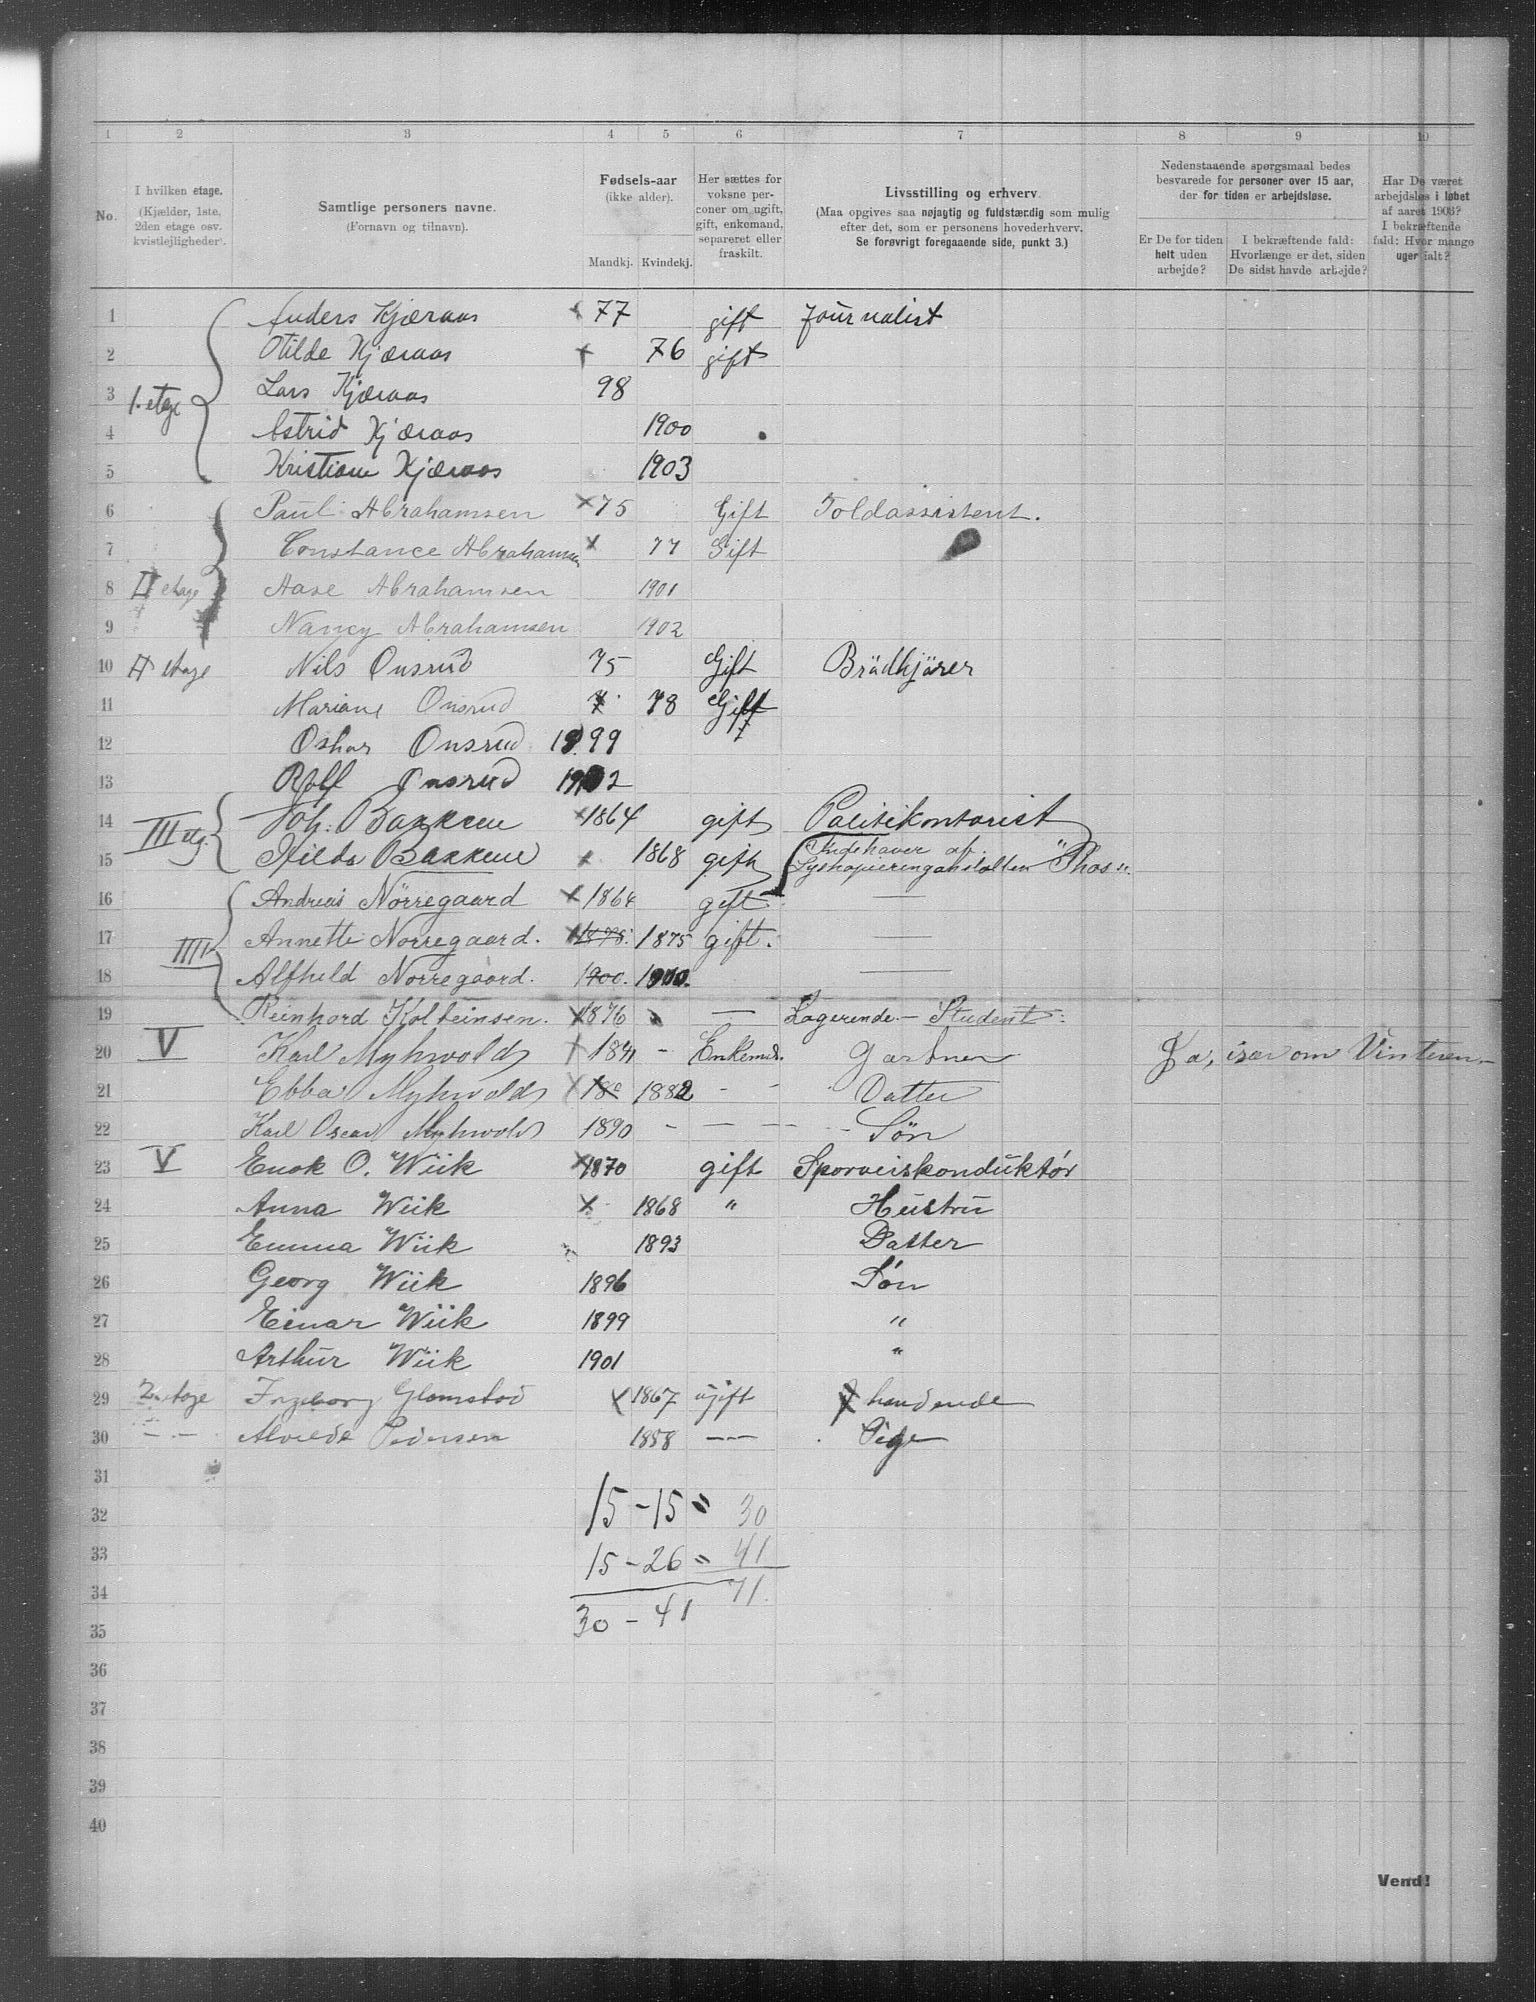 1 2 3 4 5 6 7 8 9 10
No.
I hvilken etage.
(Kjælder, 1ste, 2den etage osv. kvistlejligheder).
Samtlige personers navne.
(Fornavn og tilnavn).
Fødsels-aar
(ikke alder).
Mandkj. Kvindekj.
Her sættes for voksne personer om ugift, gift, enkemand, separeret eller fraskilt.
Livsstilling og erhverv.
(Maa opgives saa nøjagtig og fuldstændig som mulig efter det, som er personens hovederhverv.
Se forøvrigt foregaaende side, punkt 3.)
Nedenstaaende spørgsmaal bedes besvarede for personer over 15 aar, der for tiden er arbejdsløse.
Er De for tiden helt uden arbejde?
I bekræftende fald: Hvorlænge er det, siden De sidst havde arbejde?
Har De været arbejdsløs i løbet af aaret 1903? I bekræftende fald: Hvor mange uger ialt?
1 Anders Kjæraas 77 gift Journalist
2 Otilde Kjæraas 76 gift
3 1. etage Lars Kjæraas 98
4 Astrid Kjæraas 1900
5 Kristiane Kjæraas 1903
6 Paul Abrahamsen 75 Gift Toldassistent.
7 Constance Abrahamsen 77 Gift
8 II etage Aase Abrahamsen 1901
9 Nancy Abrahamsen 1902
10 II etage Nils Onsrud 75 Gift Brödkjörer
11 Mariane Onsrud 78 Gift
12 Oskar Onsrud 1899
13 Rolf Onsrud 1902
14 III etg. Joh. Bakken 1864 gift Politikontorist
15 Hilda Bakken 1868 gift Indehaver af Lyskopieringanstalten "Phos".
16 Andreas Nörregaard 1864 gift —
17 IIII Annette Norregaard. 1875 gift. —
18 Alfhild Norregaard. 1900. 1900. —
19 Reinhard Kolbeinsen. 1876 — Logerende — Student.
20 V Karl Myhrvold 1841 - Enkemd. Gartner Ja, især om Vinteren.
21 Ebba Myhrvold 1882 - - Datter
22 Karl Oscar Myhrvold 1890 - - - Søn
23 V Enok O. Wiik 1870 gift Sporveiskonduktør
24 Anna Wiik 1868 " Hustru
25 Emma Wiik 1893 Datter
26 Georg Wiik 1896 Søn
27 Einar Wiik 1899 "
28 Arthur Wiik 1901 "
29 2 etage Ingeborg Glomstad 1867 ugift handlende
30 — — Pedersen 1858 — Pige
31
32
33
34
35
36
37
38
39
40
15 - 15 = 30
15 - 26 = 41
30 - 41 71.
Vend!